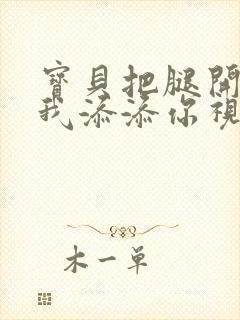 寶貝把腿開
我添添你視
木一单